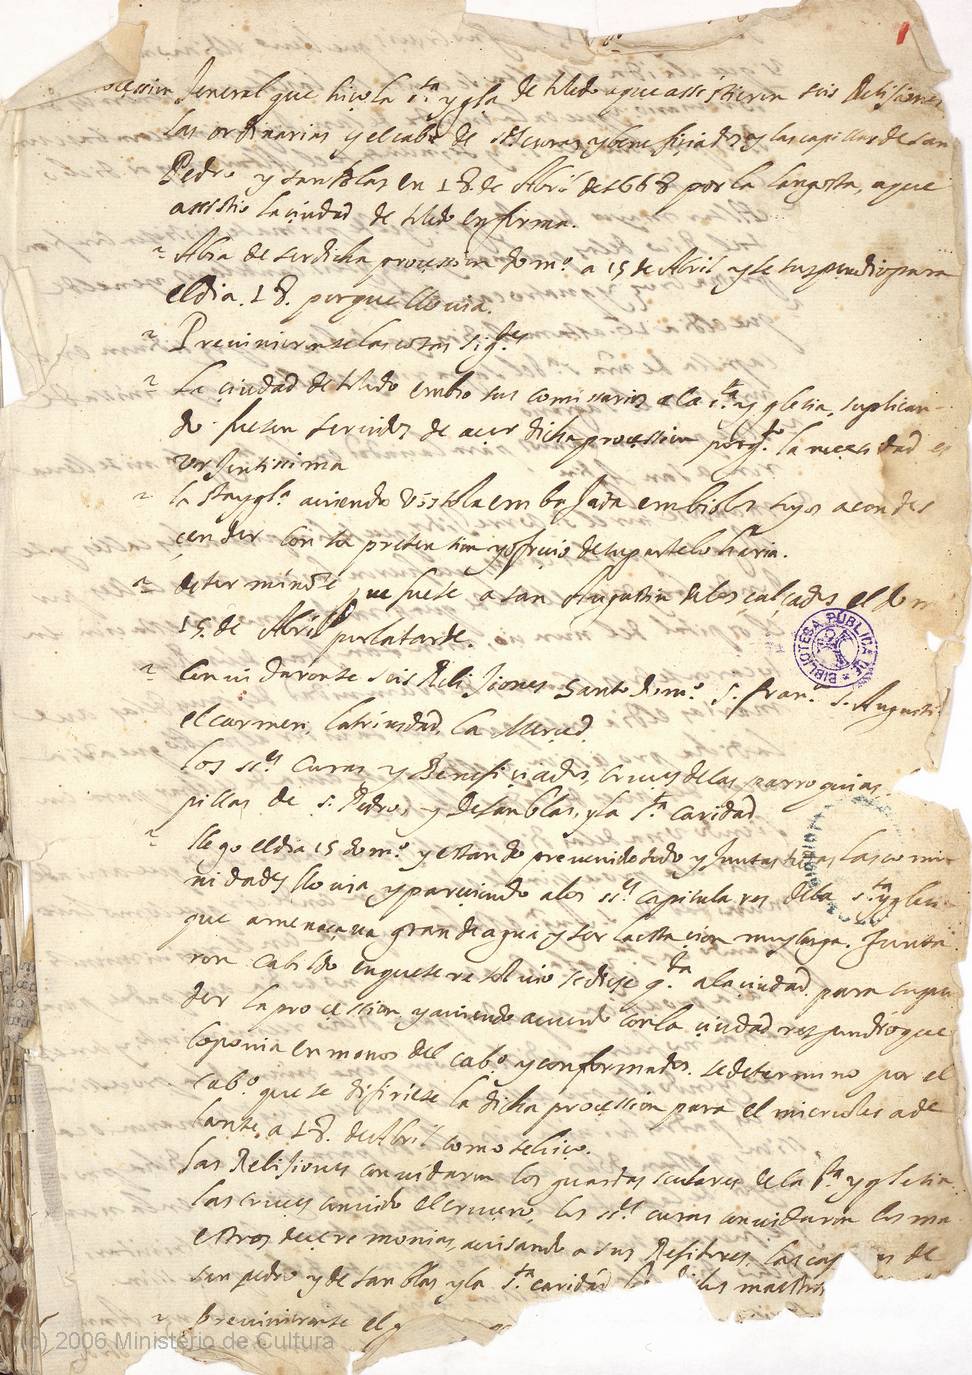 1
ocession Jeneral que hiço la s.ta ygla de tdo a que assistieron seis Relisiones
las ordinarias y el cabdo de sres curas y beneficiados y las capillas de san
Pedro y san blas en 18 de Abril de 1668 por la langosta, a que
assistio la ciudad de tdo en forma.
Abia de ser dicha procession dom.o a 15 de Abril y se suspendio para
el dia. 18. porque llouia.
Preuinieronse las cosas sig.tes
La ciudad de tdo embio sus comissarios a la s.ta yglesia, suplican-
do fuesen seruidos de açer dicha procession porq. la necesidad es
vrjentissima
la sta ygla auiendo visto la embajada embio los suyos a condes
cender con su pretension y ofreçio de su parte lo haria.
determinose que fuese a san Augustin de los calçados el dom
15. de Abril por la tarde.
Conuidaronse seis Relijiones Santo dom.o S. Fran.co S. Augusti
el carmen, la trinidad, la Merced.
Los ss.res Curas y Beneficiados, cruces de las parroquias,
pillas de s. Pedro, y de san blas, y la s.ta caridad
llego el dia 15 dom.o y estando preuenido todo y juntas todas las comu
nidades llouia y pareciendo a los ss.res capitulares de la s.ta yglesi-
que amenaçaua grande agua y ser la estacion muy larga. Junta
ron cabildo en que se resoluio se diese q.ta a la ciudad. para suspen
der la procession, y auiendo acuerdo con la ciudad respondio que
lo ponia en manos del cab.o y conformados. se determino por el
cab.o que se difiriese la dicha procession para el miercoles ade
lante, a 18. de Abril como se hiço.
Las Relijiones conuidaron los guardas seculares de la s.ta yglesia
las cruces conuido el crucero, los ss.res curas conuidaron los ma
estros de ceremonias, auisando a sus Refitores, las cap s de
san pedro y de san blas y la s.ta caridad los maestros
Preuinieronse el
BIBLIOTECA PÚBLICA DE
(c) 2006 Ministerio de Cultura